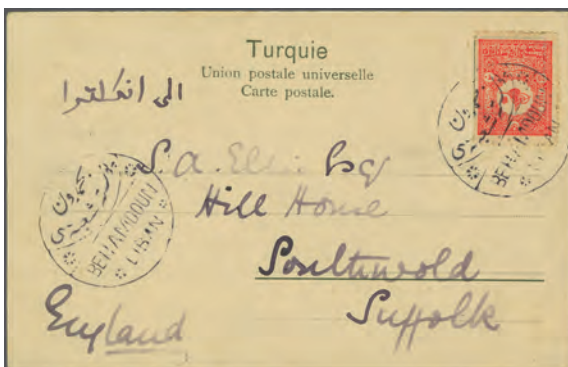 Turquie
Union postale universelle
Carte postale.
الى انكلترا
S. A. Ellis Esq
Hill House
Southwold
Suffolk
England
BEHAMDOUN
* LIBAN *
BEHAMDOUN